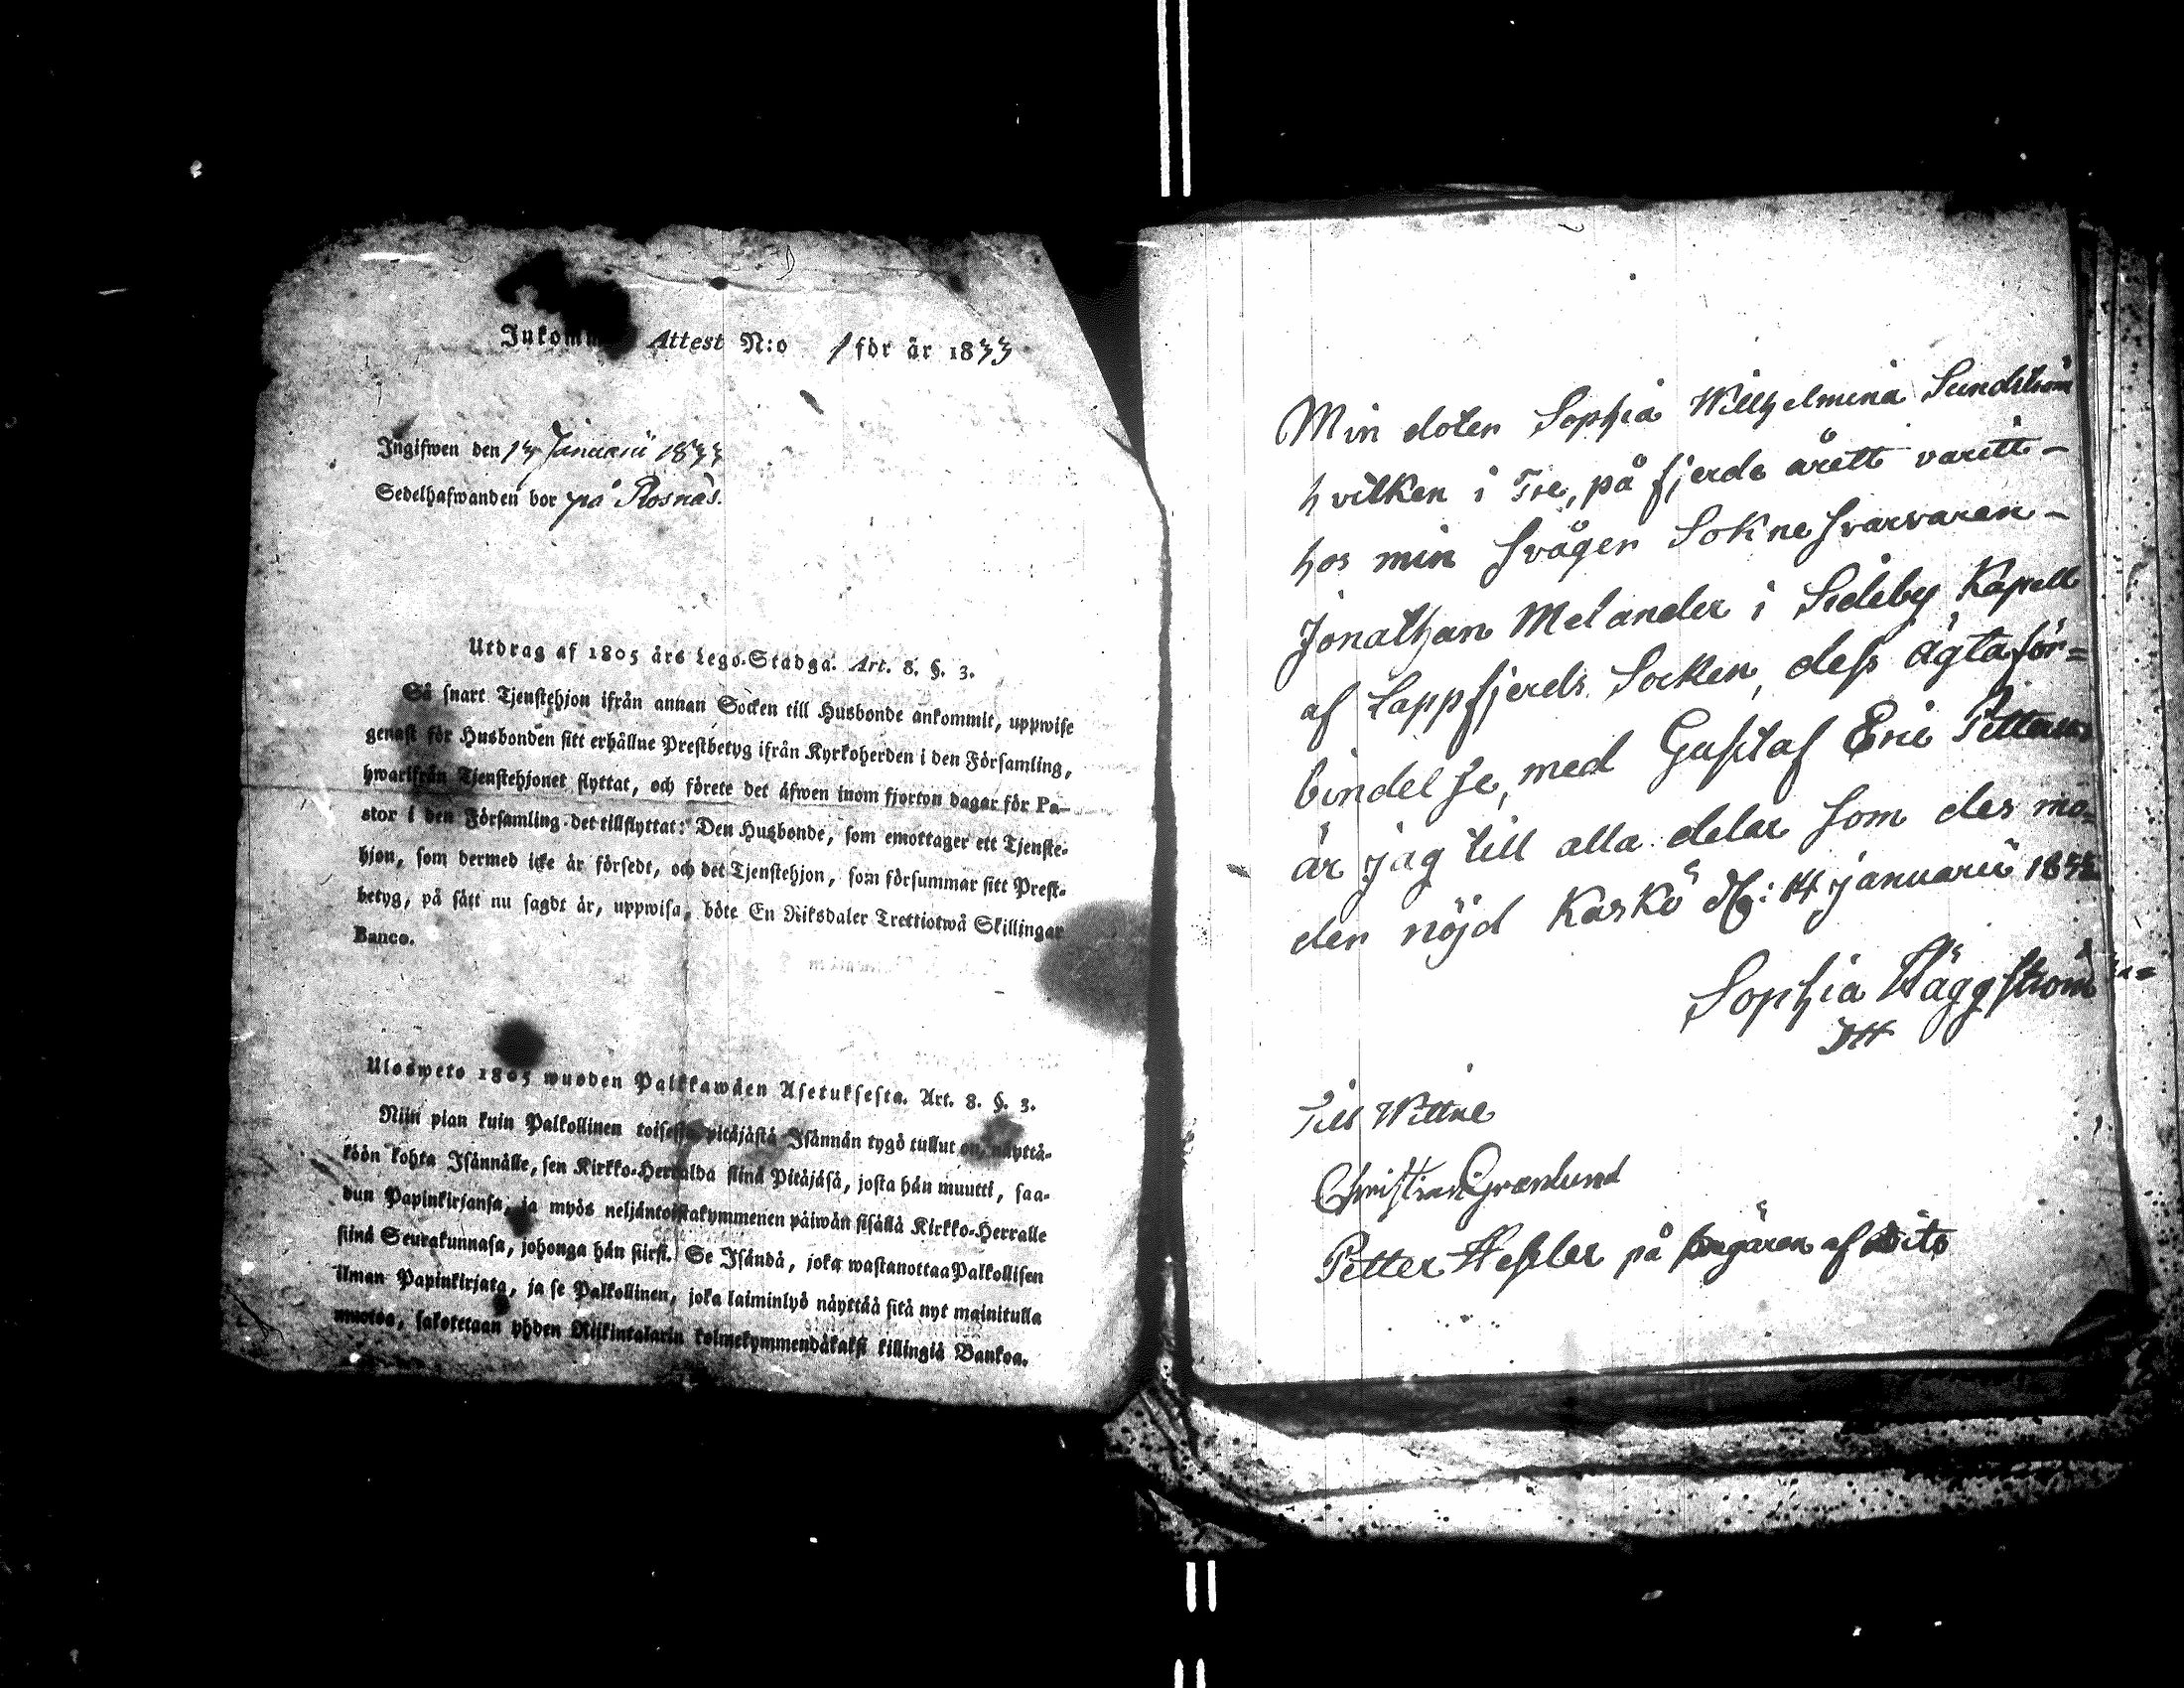 Inkomm Attest N:o 1 för år 1833
Ingifwen den 17 Januarii 1833
Sedelhafwanden bor på Rosnäs.
Utdrag af 1805 års Lego-Stadga. Art. 8. §. 3.
Så snart Tjenstehjon ifrån annan Socken till Husbonde ankommit, uppwise
genast för Husbonden sitt erhållne Prestbetyg ifrån Kyrkoherden i den Församling,
hwarifrån Tjenstehjonet flyttat, och förete det äfwen inom fjorton dagar för Pa-
stor i den Församling det tillflyttat: Den Husbonde, som emottager ett Tjenste-
hjon, som dermed icke är försedt, och det Tjenstehjon, som försummar sitt Prest-
betyg, på sätt nu sagdt är, uppwisa, böte En Riksdaler Trettiotwå Skillingar
Banco.
Ulosweto 1805 wuoden Palkkawäen Asetuksesta. Art. 8. §. 3.
Niin pian kuin Palkollinen toisesta pitäjästä Isännän tygö tullut on, näyttä-
köön kohta Isännälle, sen Kirkko-Herralda siinä Pitäjäsä, josta hän muutti, saa-
dun Papinkirjansa, ja myös neljäntoistakymmenen päiwän sisällä Kirkko-Herralle
siinä Seurakunnasa, johonga hän siirsi. Se Isändä, joka wastanottaa Palkollisen
ilman Papinkirjata, ja se Palkollinen, joka laiminlyö näyttää sitä nyt mainitulla
muotoa, sakotetaan yhden Riikintalarin kolmekymmendäkaksi killingiä Bankoa.
Min doter Sophia Willhelmina Sundström
hvilken i Tre, på fjerde årett varitt -
hos min Svåger Sokne Svarvaren -
Jonathan Melander i Sideby Kapell
af Lappfjerds Socken, dess ägta för=
bindelse, med Gustaf Eric Petters
är jag till alla delar som des mo=
der nöjd Kaskö d: 14 januarii 1833
Sophia Häggström
Till Wittne
Christian Grönlund
Petter Hessler på begäran af Dito